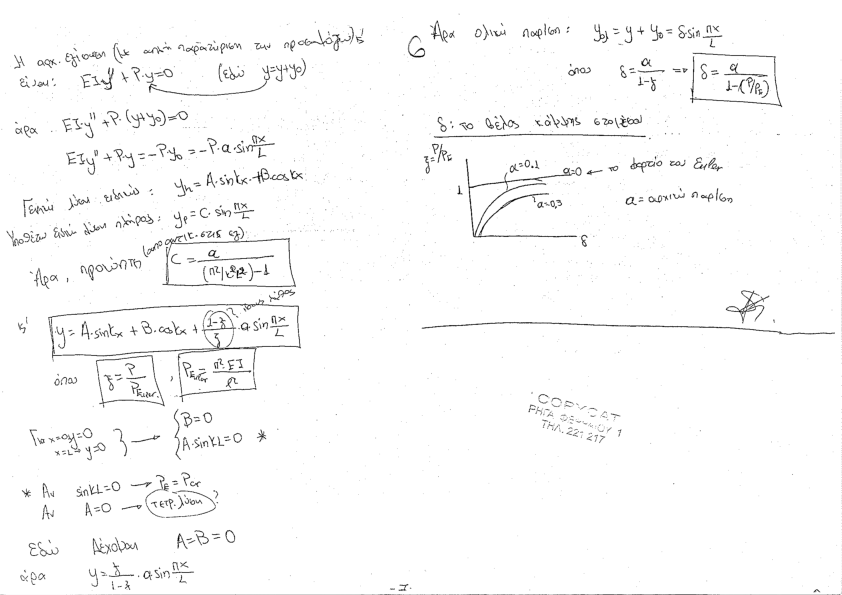 Η αρχ. εξίσωση (με απλή παρατήρηση των προσανατολισμών)
είναι: EI·y'' + P·y = 0 (εδώ y=y+y₀)
άρα EI·y'' + P·(y+y₀)=0
EI·y'' + P·y = -P·y₀ = -P·a·sin πx/L
Γενική λύση ειδικής: yₕ = A·sinkx + B·coskx
Υποθέτω ειδική λύση πλήρης: yₚ = C·sin πx/L
Άρα, προκύπτει (από αντικ. στις εξ) C = a / ((π²/k²ℓ²)-1)
κι y = A·sinkx + B·coskx + (1-ζ)/ζ · a·sin πx/L
? ίσως λάθος
όπου ζ = P/P_Euler , P_Euler = π²·EI/ℓ²
Για x=0 y=0
x=L→ y=0
B=0
A·sinkL=0 *
* Αν sinkL=0 → P_E = Pcr
Αν A=0 → τετρ. λύση ?
Εδώ Δέχομαι A=B=0
άρα y = ζ/(1-ζ) · a·sin πx/L
6 Άρα ολική παρ/ση: y_ολ = y + y₀ = δ·sin πx/L
όπου δ = a/(1-ζ) ⇒ δ = a/(1-(P/P_E))
δ: το βέλος κάμψης στοιχείου
ζ=P/P_E
1
a=0.1
a=0 ← το φορτίο του Euler
a=0,3
a = αρχική παρ/ση
δ
COPYCAT
ΡΗΓΑ ΦΕΡΑΙΟΥ 1
ΤΗΛ. 221 217